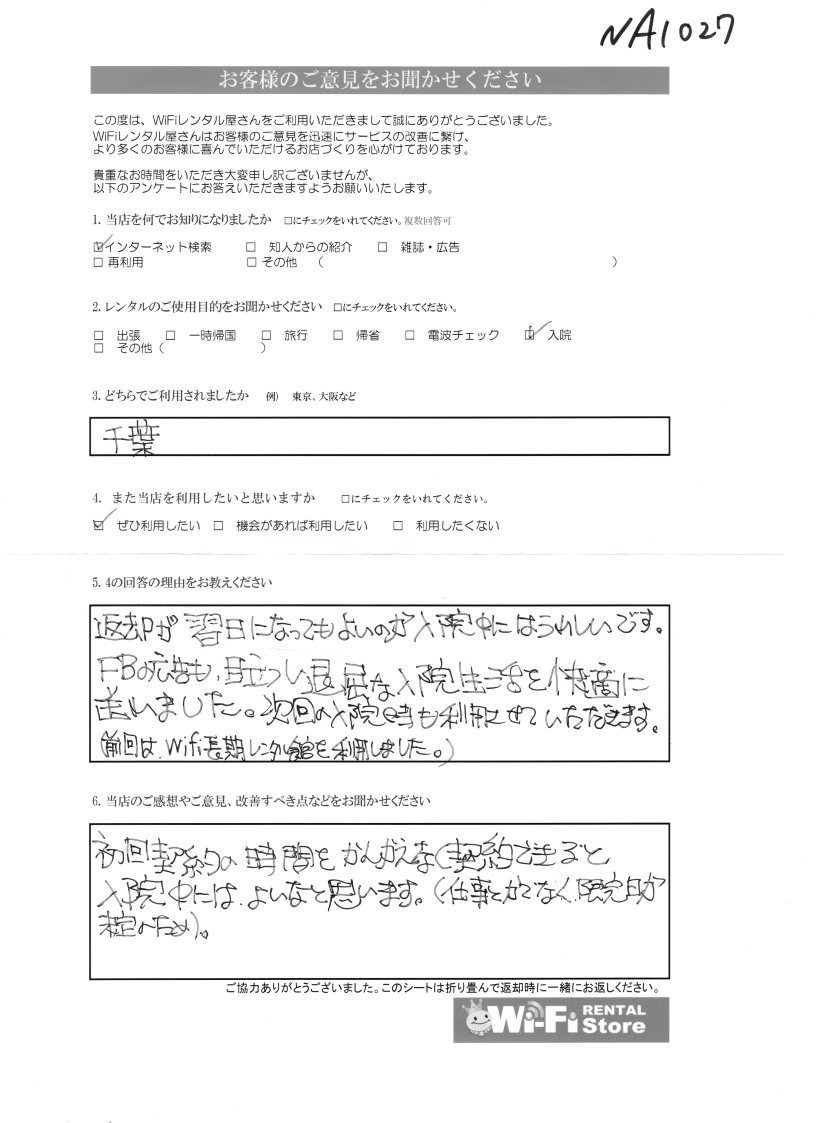 NA1027
お客様のご意見をお聞かせください
この度は、WiFiレンタル屋さんをご利用いただきまして誠にありがとうございました。
WiFiレンタル屋さんはお客様のご意見を迅速にサービスの改善に繋げ、
より多くのお客様に喜んでいただけるお店づくりを心がけております。
貴重なお時間をいただき大変申し訳ございませんが、
以下のアンケートにお答えいただきますようお願いいたします。
1. 当店を何でお知りになりましたか □にチェックをいれてください。複数回答可
☑インターネット検索 □ 知人からの紹介 □ 雑誌・広告
□ 再利用 □ その他 ( )
2. レンタルのご使用目的をお聞かせください □にチェックをいれてください。
□ 出張 □ 一時帰国 □ 旅行 □ 帰省 □ 電波チェック ☑ 入院
□ その他 ( )
3. どちらでご利用されましたか 例) 東京、大阪など
千葉
4. また当店を利用したいと思いますか □にチェックをいれてください。
☑ ぜひ利用したい □ 機会があれば利用したい □ 利用したくない
5. 4の回答の理由をお教えください
返却が翌日になってもよいのが入院中にはうれしいです。
FBの広告も、目立つし退屈な入院生活を快適に
送れました。次回の入院時も利用させていただきます。
(前回は、Wifi長期レンタル館を利用しました。)
6. 当店のご感想やご意見、改善すべき点などをお聞かせください
初回契約の時間をかんがえなく契約できると
入院中には、よいなと思います。(仕事とかでなく、退院日が
未定のため)。
ご協力ありがとうございました。このシートは折り畳んで返却時に一緒にお返しください。
Wi-Fi RENTAL Store